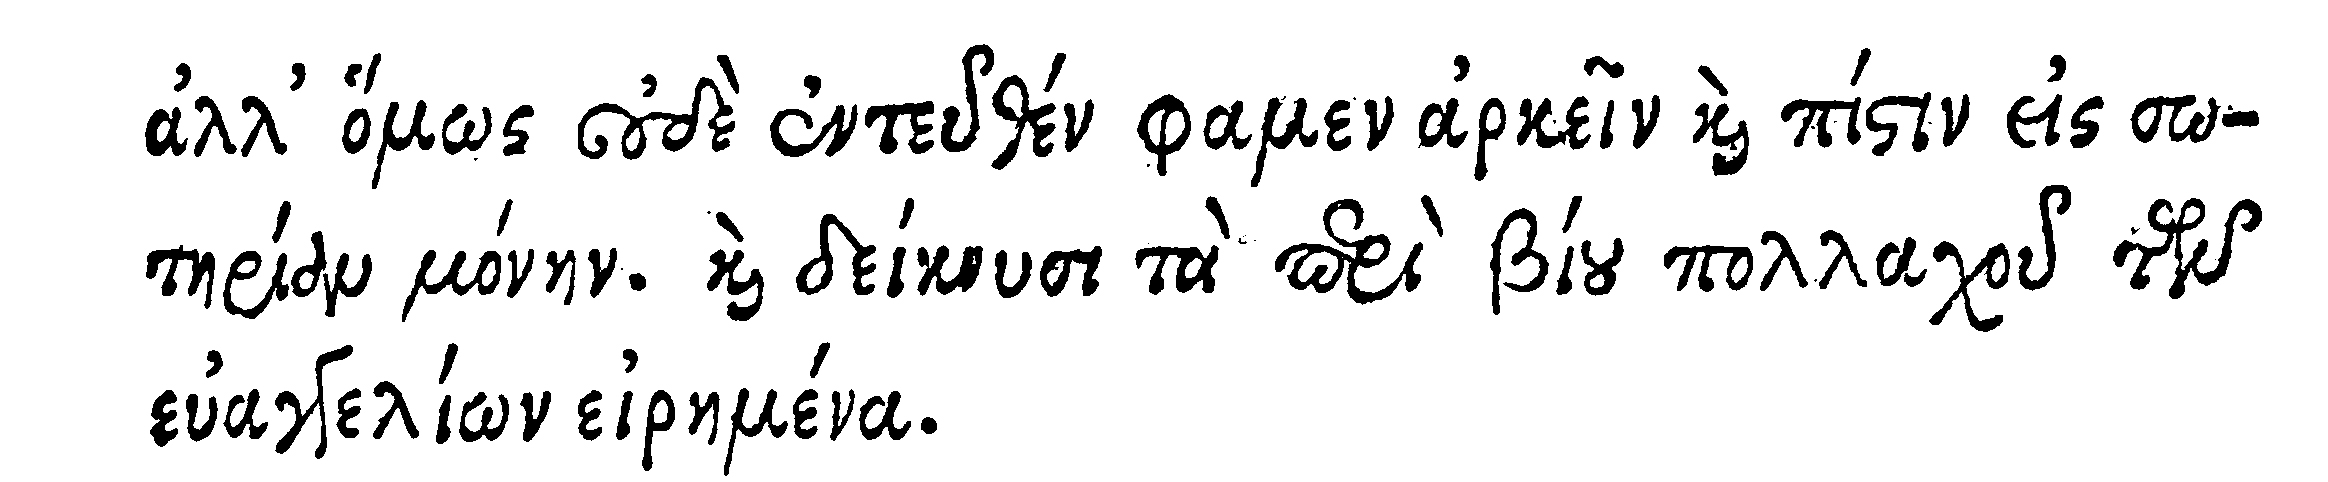 ἀλλ' ὅμως οὐδὲ ἐντεῦθέν φαμεν ἀρκεῖν καὶ πίστιν εἰς σω-
τηρίαν μόνην. καὶ δείκνυσι τὰ περὶ βίου πολλαχοῦ τῶν
εὐαγγελίων εἰρημένα.